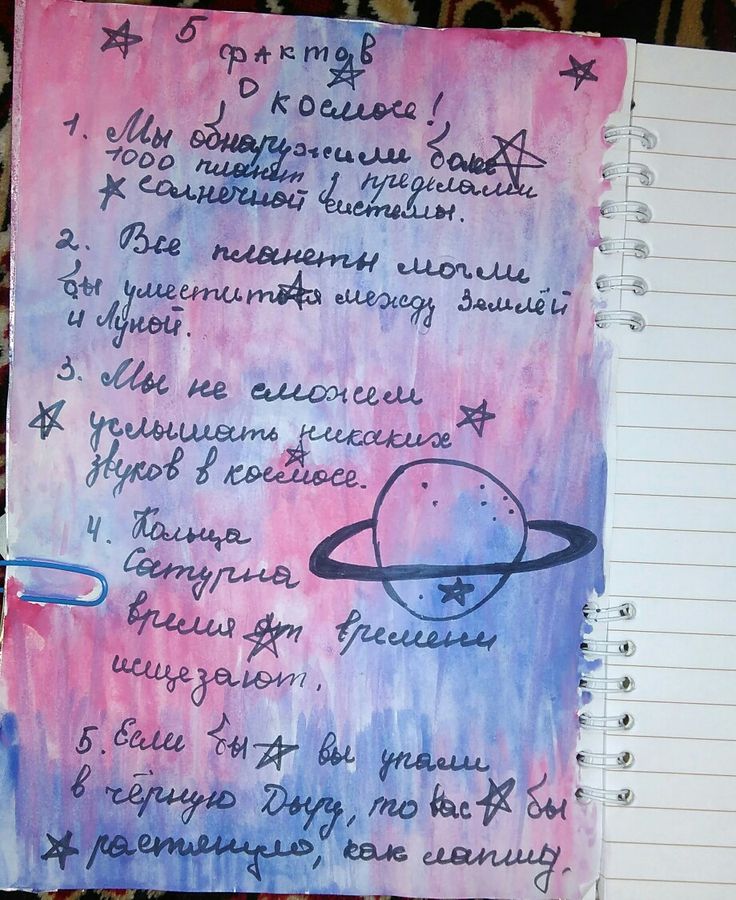 5
фактов
о космосе!
1. Мы обнаружили более
1000 планет у пределами
солнечной системы.
2. Все планеты могли
бы уместиться между Землёй
и Луной.
3. Мы не сможем
услышать никаких
звуков в космосе.
4. Кольца
Сатурна
время от времени
исчезают.
5. Если бы вы упали
в чёрную Дыру, то вас бы
растянуло, как лапшу.